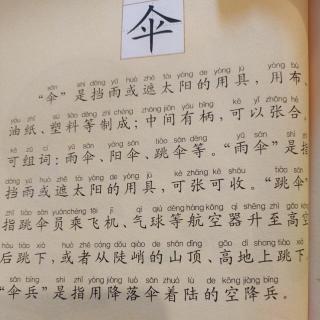 伞
sǎn shì dǎng yǔ huò zhē tài yáng de yòng jù yòng bù
“伞”是挡雨或遮太阳的用具，用布、
yóu zhǐ sù liào děng zhì chéng zhōng jiān yǒu bǐng kě yǐ zhāng hé
油纸、塑料等制成；中间有柄，可以张合。
kě zǔ cí yǔ sǎn yáng sǎn tiào sǎn děng yǔ sǎn shì
可组词：雨伞、阳伞、跳伞等。“雨伞”是指
dǎng yǔ huò zhē tài yáng de yòng jù kě zhāng kě shōu tiào sǎn
挡雨或遮太阳的用具，可张可收。“跳伞”
zhǐ tiào sǎn yuán chéng fēi jī qì qiú děng háng kōng qì shēng zhì gāo kōng
指跳伞员乘飞机、气球等航空器升至高空
hòu tiào xià huò zhě cóng dǒu qiào de shān dǐng gāo dì shang tiào xià
后跳下，或者从陡峭的山顶、高地上跳下
sǎn bīng shì zhǐ yòng jiàng luò sǎn zhuó lù de kōng jiàng bīng
“伞兵”是指用降落伞着陆的空降兵。